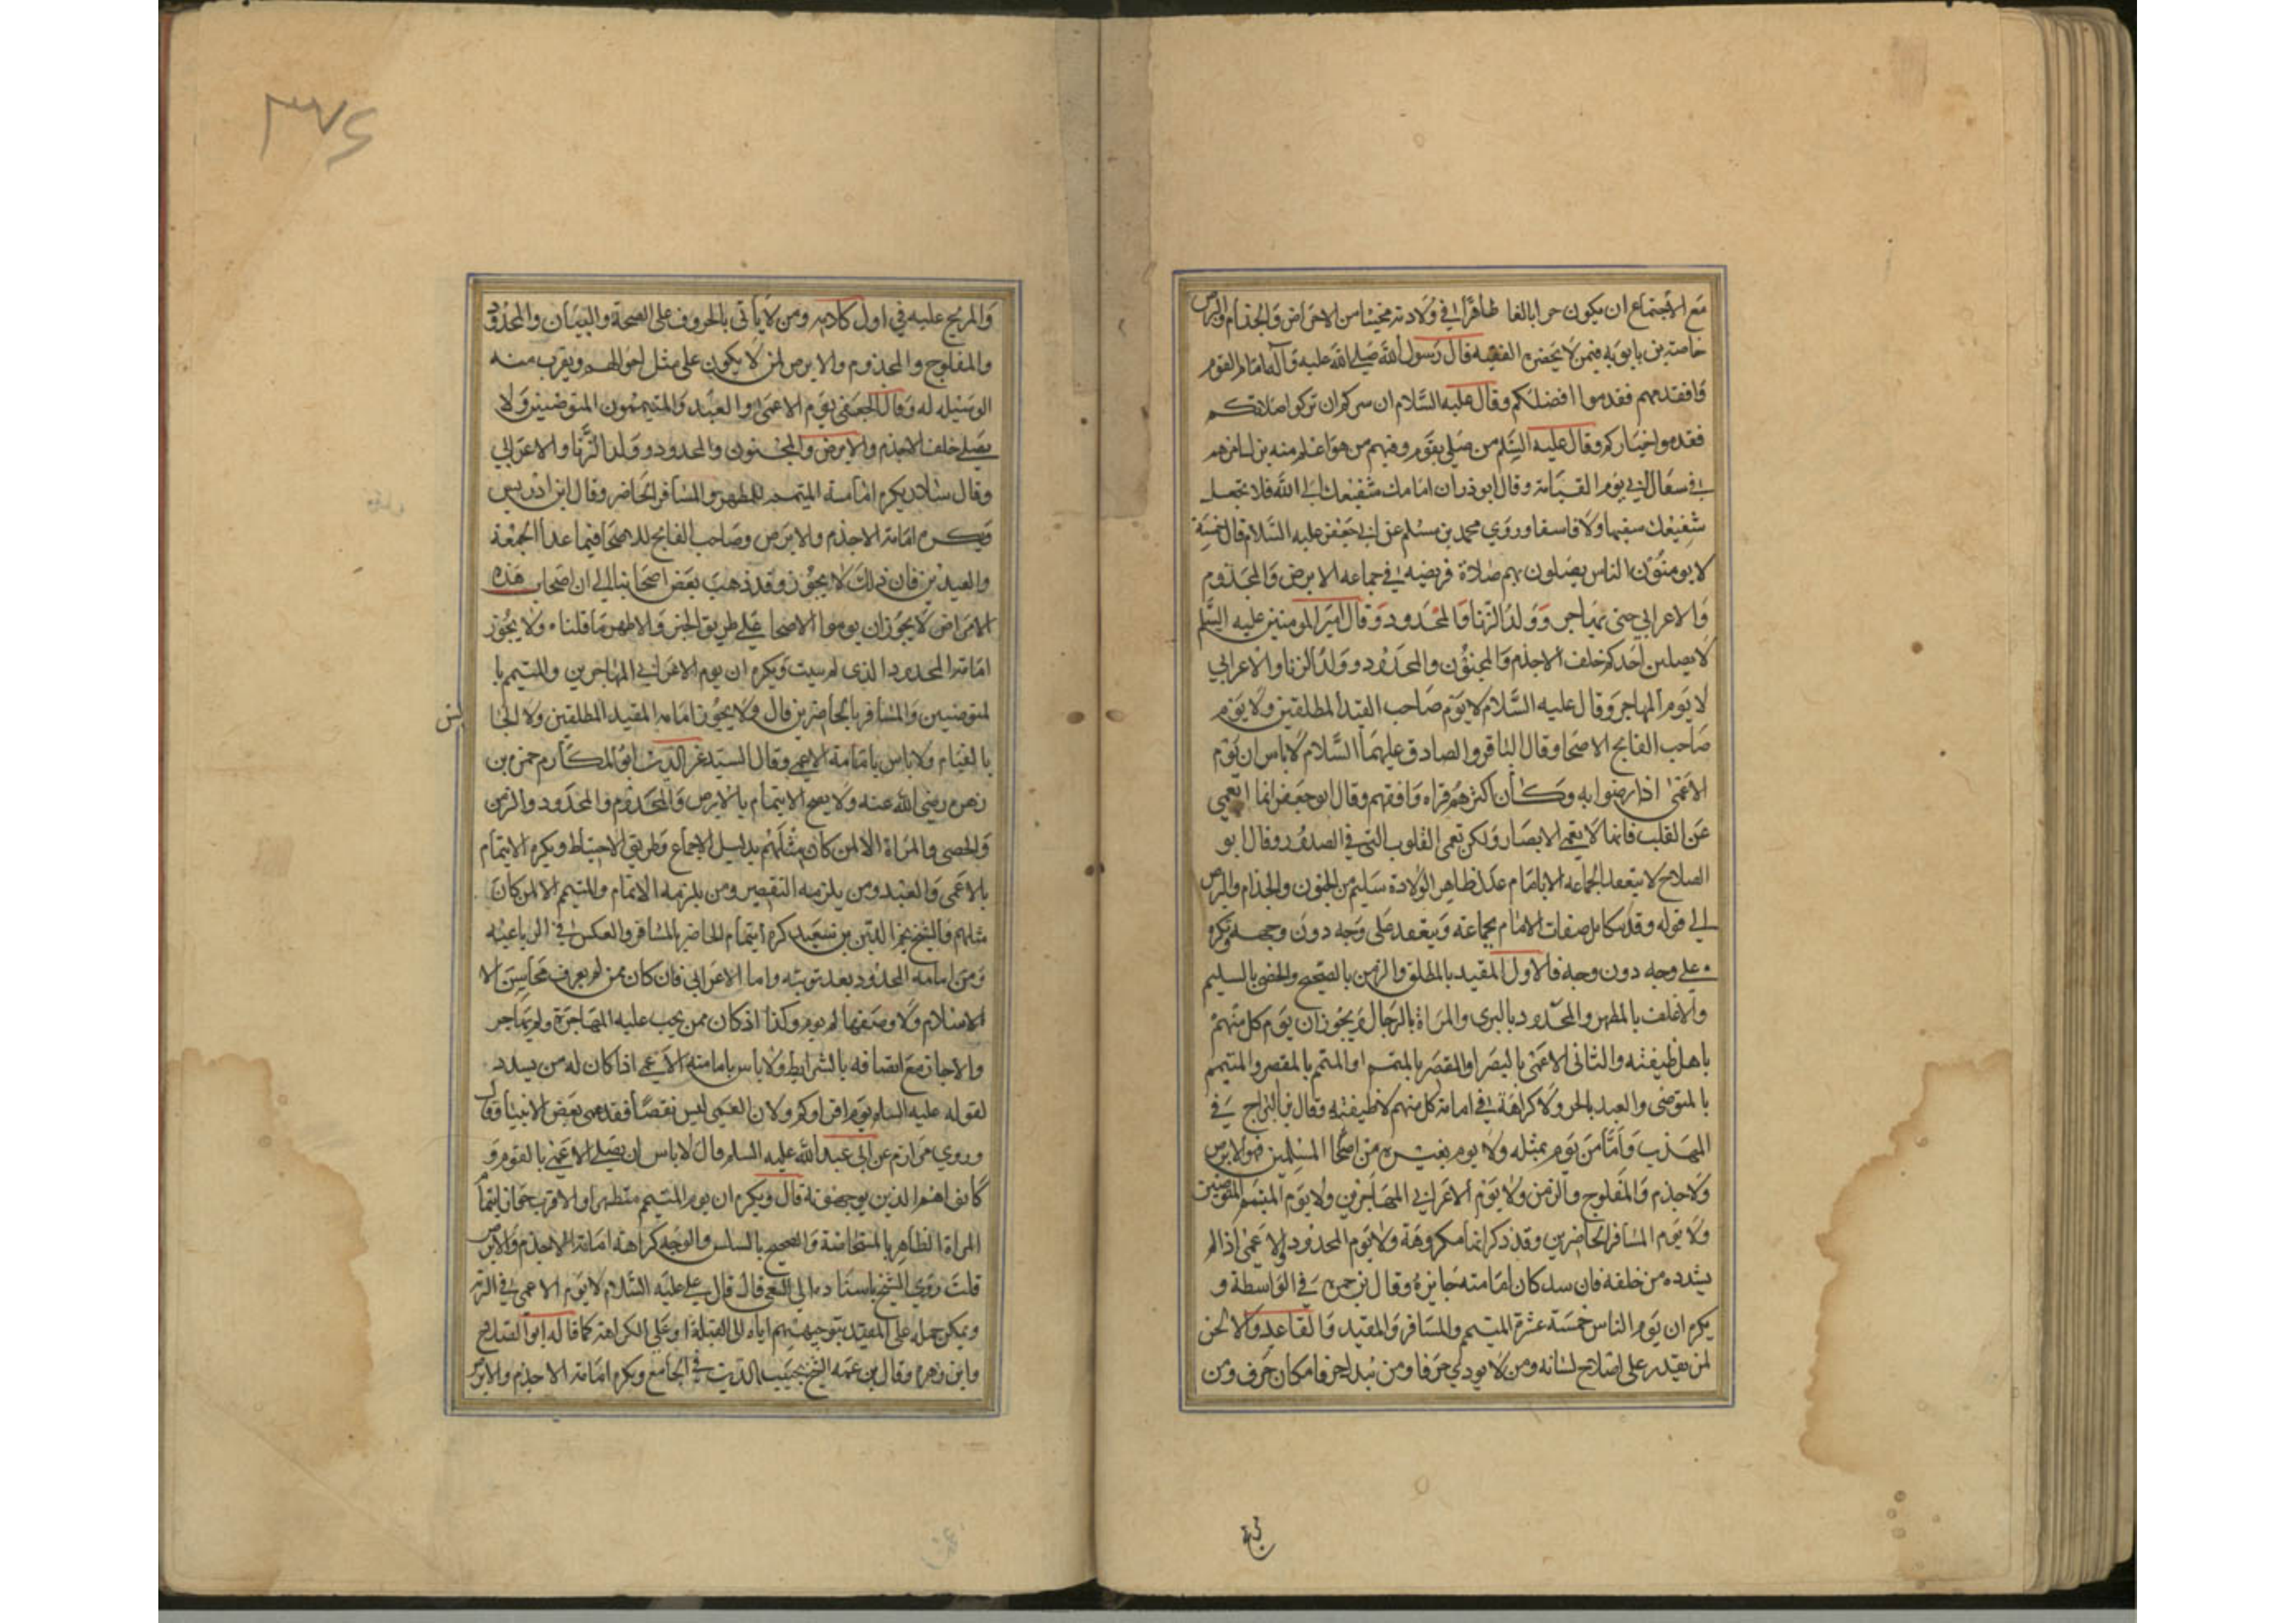 مع الاجتماع ان يكون حرا بالغا طاهرا في ولادته مجنبا من الامراض والجذام والبرص
خاصة بن بابويه فيمن لا يحضره الفقيه قال رسول الله صلى الله عليه وآله امام القوم
وافدهم فقدموا افضلكم وقال عليه السلام ان سركم ان تزكوا صلاتكم
فقدموا خياركم وقال عليه السلم من صلى بقوم وفيهم من هو اعلم منه لم يزل امرهم
في سفال الي يوم القيامة وقال ابو ذر ان امامك شفيعك الى الله فلا تجعل
شفيعك سفيها ولا فاسقا وروي محمد بن مسلم عن ابي جعفر عليه السلام قال خمسة
لا يومنون الناس يصلون بهم صلاة فريضه في جماعه الابرص والمجذوم
والاعرابي حتى يهاجر وولد الزنا والمحدود وقال امير المومنين عليه السلم
لا يصلين احدكم خلف الاجذم والمجنون والمحدود وولد الزنا والاعرابي
لا يوم المهاجر وقال عليه السلام لا يوم صاحب القيد المطلقين ولا يوم
صاحب الفالج الاصحا وقال الباقر والصادق عليهما السلام لا باس ان يوم
الاعمى اذا رضوا به وكان اكثرهم قراه وافقههم وقال ابو جعفر انما العمي
عن القلب فانها لا تعمي الابصار ولكن تعمى القلوب التي في الصدور وقال ابو
الصلاح لا ينعقد الجماعه الا بامام عدل طاهر الولادة سليم من الجنون والجذام والبرص
الي قوله وقد يتكامل صفات الامام بجماعة وينعقد على وجه دون وجه ويكره
على وجه دون وجه فالاول المقيد بالمطلق والزمن بالصحيح والخصي بالسليم
والاغلف بالمطهر والمحدود بالبري والمراة بالرجال ويجوز ان يوم كل منهم
باهل طيفته والثاني الاعمى بالبصرا والمقصر بالمتمم او المتمم بالمقصر والمتيمم
بالمتوضي والعبد بالحر ولا كراهة في امامة كل منهم لاهل طيفته وقال بن البراج في
المهذب واما من يوم بمثله ولا يوم بغيره من اصحا المسلمين فهو الابرص
والاجذم والمفلوج والزمن ولا يوم الاعرابي المهاجرين ولا يوم المتيمم المتوضين
ولا يوم المسافر الحاضرين وقد ذكر انها مكروهة ولا يوم المحدود والاعمى اذا لم
يسدده من خلفه فان سدد كان امامته جايزة وقال بن حمزه في الواسطة و
يكره ان يوم الناس خمسة عشر المتيمم والمسافر والمقيد والقاعد والالحن
لمن يقدر على اصلاح لسانه ومن لا يودي حرفا ومن يبدل حرفا مكان حرف ومن
والمرتج عليه في اول كلامه ومن لا ياتى بالحروف على الصحة والبيان والمحدود
والمفلوج والمجذوم والابرص لمن لا يكون على مثل احوالهم ويقرب منه
الوسيله له وقال الجعفي يوم الاعمى والعبد والمتيممون المتوضئين ولا
يصلى خلف الاجذم والابرص والمجنون والمحدود وولد الزنا والاعرابي
وقال سلار يكره امامة المتيمم للمطهر والمسافر الحاضر وقال ابن ادريس
ويكره امامة الاجذم والابرص وصاحب الفالج للاصحا فيما عدا الجمعة
والعيدين فان ذلك لا يجوز وقد ذهب بعض اصحابنا الي ان اصحاب هذه
الامراض لا يجوز ان يوموا الاصحا على طريق الحظر والاظهر ما قلناه ولا يجوز
امامة المحدود الذي لم يتب ويكره ان يوم الاعرابي المهاجرين والمتيمم با
لمتوضيين والمسافر بالحاضرين قال ولا يجوز امامه المقيد المطلقين ولا الجا
لس
بالقيام ولا باس بامامة الاعمى وقال السيد عز الدين ابو المكارم حمزه بن
زهره رضي الله عنه ولا يصح الايتمام بالابرص والمجذوم والمحدود والزمن
والخصى والمراة الا لمن كان مثلهم بدليل الاجماع وطريق الاحتياط ويكره الايتمام
بالاعمى والعبد ومن يلزمه التقصير ومن يلزمه الاتمام والمتيمم الا لمن كان
مثلهم قال الشيخ نجم الدين بن سعيد كره ايتمام الحاضر بالمسافر والعكس في الرباعيه
ومن امامه المحدود بعد توبته واما الاعرابي فان كان ممن لم يعرف محاسن الا
الاسلام ولا وصفها لم يوم وكذا اذ كان ممن يجب عليه المهاجرة ولم يهاجر
والا جاز مع اتصافه بالشرايط ولا باس بامامته الاعمى اذا كان له من يسدده
لقوله عليه السلم يوم اقراوكم ولان العمى ليس نقصا فقد عمى بعض الانبيا وقال
وروي مرازم عن ابى عبد الله عليه السلم قال لا باس ان يصلى الاعمى بالقوم و
كانوا هم الذين يوجهونه قال ويكره ان يوم المتيمم متطهرا والاقرب جواز ايتمام
المراة الطاهر بالمستحاضة والصحيح بالسلس والوجه كراهة امامة الاجذم والابرص
قلت روي الشيخ باسناده الي الشعبي قال قال علي عليه السلام لا يوم الاعمى في البرية
ويمكن حمله على المقتد بتوجيههم اياه الى القبلة او على الكراهة كما قاله ابو الصلاح
وابن زهره وقال بن عمه الشيخ نجيب الدين في الجامع ويكره امامة الاجذم والابرص